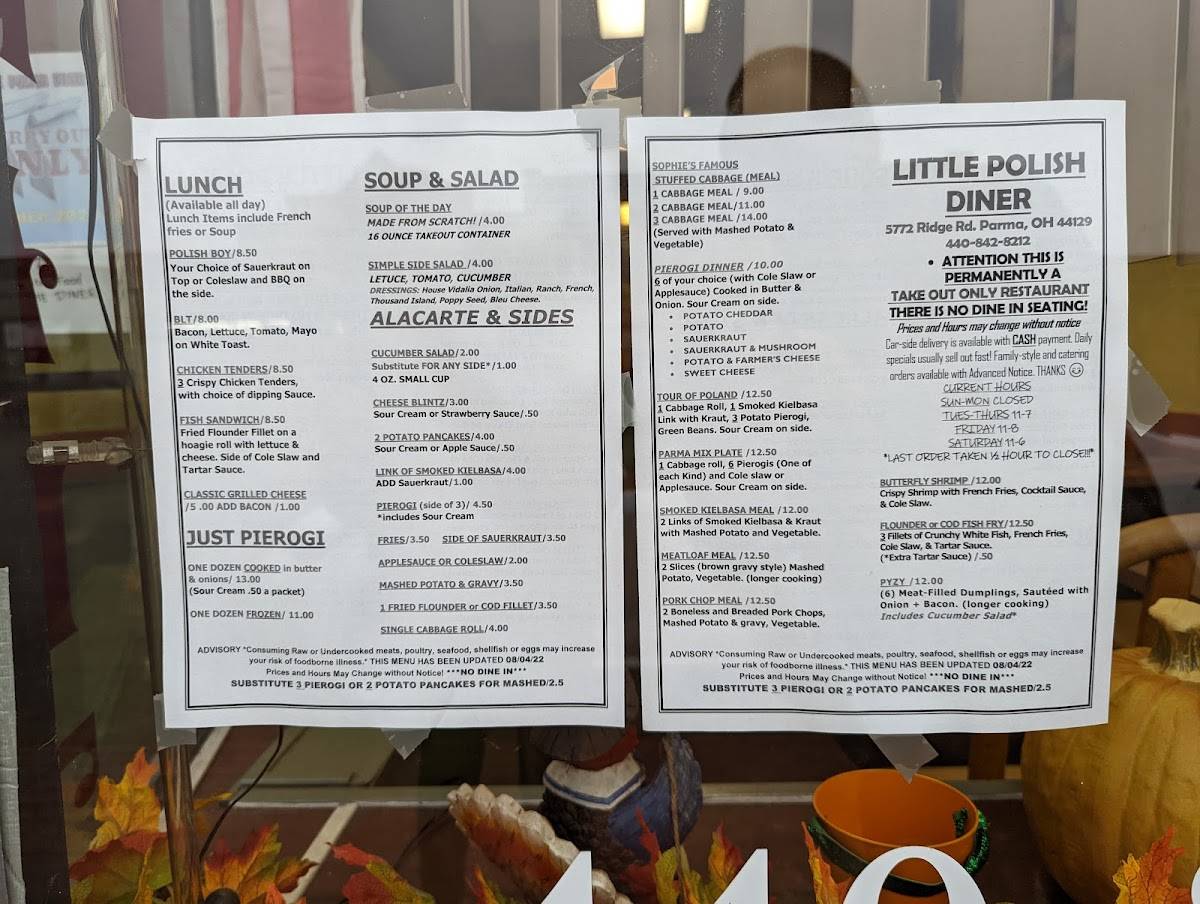 LUNCH
(Available all day)
Lunch Items include French
fries or Soup
POLISH BOY/8.50
Your Choice of Sauerkraut on
Top or Coleslaw and BBQ on
the side.
BLT/8.00
Bacon, Lettuce, Tomato, Mayo
on White Toast.
CHICKEN TENDERS/8.50
3 Crispy Chicken Tenders,
with choice of dipping Sauce.
FISH SANDWICH/8.50
Fried Flounder Fillet on a
hoagie roll with lettuce &
cheese. Side of Cole Slaw and
Tartar Sauce.
CLASSIC GRILLED CHEESE
/5 .00 ADD BACON /1.00
JUST PIEROGI
ONE DOZEN COOKED in butter
& onions/ 13.00
(Sour Cream .50 a packet)
ONE DOZEN FROZEN/ 11.00
SOUP & SALAD
SOUP OF THE DAY
MADE FROM SCRATCH! /4.00
16 OUNCE TAKEOUT CONTAINER
SIMPLE SIDE SALAD /4.00
LETUCE, TOMATO, CUCUMBER
DRESSINGS: House Vidalia Onion, Italian, Ranch, French,
Thousand Island, Poppy Seed, Bleu Cheese.
ALACARTE & SIDES
CUCUMBER SALAD/2.00
Substitute FOR ANY SIDE*/1.00
4 OZ. SMALL CUP
CHEESE BLINTZ/3.00
Sour Cream or Strawberry Sauce/.50
2 POTATO PANCAKES/4.00
Sour Cream or Apple Sauce/.50
LINK OF SMOKED KIELBASA/4.00
ADD Sauerkraut/1.00
PIEROGI (side of 3)/ 4.50
*includes Sour Cream
FRIES/3.50 SIDE OF SAUERKRAUT/3.50
APPLESAUCE OR COLESLAW/2.00
MASHED POTATO & GRAVY/3.50
1 FRIED FLOUNDER or COD FILLET/3.50
SINGLE CABBAGE ROLL/4.00
ADVISORY "Consuming Raw or Undercooked meats, poultry, seafood, shellfish or eggs may increase
your risk of foodborne illness." THIS MENU HAS BEEN UPDATED 08/04/22
Prices and Hours May Change without Notice! ***NO DINE IN***
SUBSTITUTE 3 PIEROGI OR 2 POTATO PANCAKES FOR MASHED/2.5
SOPHIE'S FAMOUS
STUFFED CABBAGE (MEAL)
1 CABBAGE MEAL / 9.00
2 CABBAGE MEAL/11.00
3 CABBAGE MEAL /14.00
(Served with Mashed Potato &
Vegetable)
PIEROGI DINNER /10.00
6 of your choice (with Cole Slaw or
Applesauce) Cooked in Butter &
Onion. Sour Cream on side.
• POTATO CHEDDAR
• POTATO
• SAUERKRAUT
• SAUERKRAUT & MUSHROOM
• POTATO & FARMER'S CHEESE
• SWEET CHEESE
TOUR OF POLAND /12.50
1 Cabbage Roll, 1 Smoked Kielbasa
Link with Kraut, 3 Potato Pierogi,
Green Beans. Sour Cream on side.
PARMA MIX PLATE /12.50
1 Cabbage roll, 6 Pierogis (One of
each Kind) and Cole slaw or
Applesauce. Sour Cream on side.
SMOKED KIELBASA MEAL /12.00
2 Links of Smoked Kielbasa & Kraut
with Mashed Potato and Vegetable.
MEATLOAF MEAL /12.50
2 Slices (brown gravy style) Mashed
Potato, Vegetable. (longer cooking)
PORK CHOP MEAL /12.50
2 Boneless and Breaded Pork Chops,
Mashed Potato & gravy, Vegetable.
LITTLE POLISH
DINER
5772 Ridge Rd. Parma, OH 44129
440-842-8212
• ATTENTION THIS IS
PERMANENTLY A
TAKE OUT ONLY RESTAURANT
THERE IS NO DINE IN SEATING!
Prices and Hours may change without notice
Car-side delivery is available with CASH payment. Daily
specials usually sell out fast! Family-style and catering
orders available with Advanced Notice. THANKS ☺
CURRENT HOURS
SUN-MON CLOSED
TUES-THURS 11-7
FRIDAY 11-8
SATURDAY 11-6
*LAST ORDER TAKEN ½ HOUR TO CLOSE!!!*
BUTTERFLY SHRIMP /12.00
Crispy Shrimp with French Fries, Cocktail Sauce,
& Cole Slaw.
FLOUNDER or COD FISH FRY/12.50
3 Fillets of Crunchy White Fish, French Fries,
Cole Slaw, & Tartar Sauce.
(*Extra Tartar Sauce) /.50
PYZY /12.00
(6) Meat-Filled Dumplings, Sautéed with
Onion + Bacon. (longer cooking)
Includes Cucumber Salad*
ADVISORY "Consuming Raw or Undercooked meats, poultry, seafood, shellfish or eggs may increase
your risk of foodborne illness." THIS MENU HAS BEEN UPDATED 08/04/22
Prices and Hours May Change without Notice! ***NO DINE IN***
SUBSTITUTE 3 PIEROGI OR 2 POTATO PANCAKES FOR MASHED/2.5